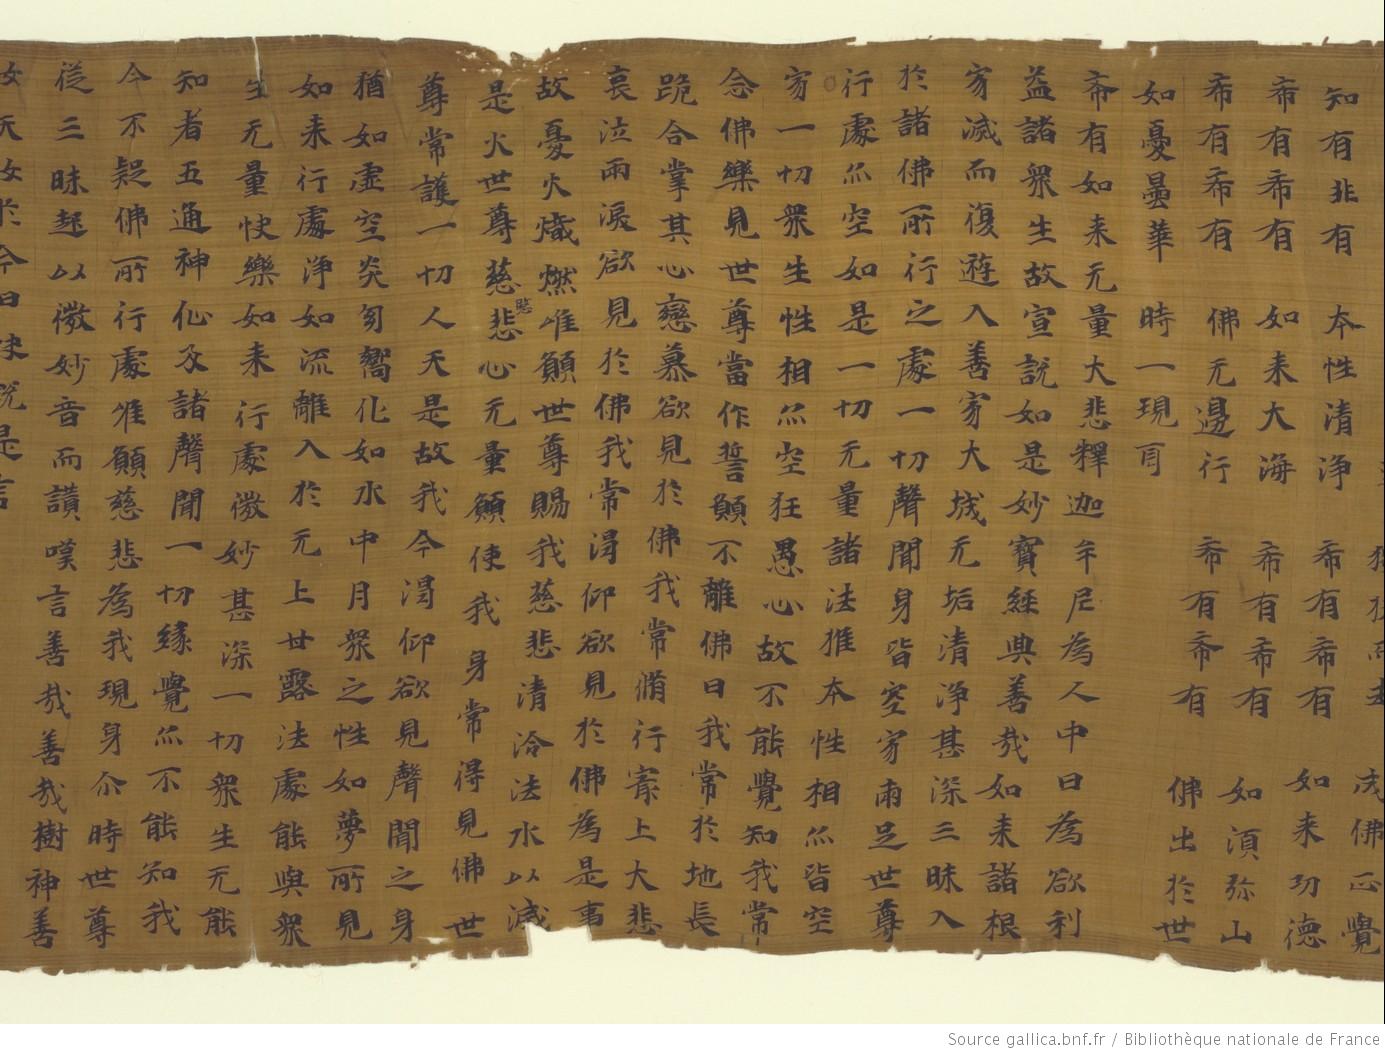 成佛正覺
知有非有 本性清淨 希有希有 如来功德
希有希有 如来大海 希有希有 如須弥山
希有希有 佛无邊行 希有希有 佛出於世
如憂曇華 時一現耳
希有如来无量大悲釋迦牟尼為人中日為欲利
益諸衆生故宣說如是妙寶經典善哉如来諸根
寂滅而復遊入善寂大城无垢清淨甚深三昧入
於諸佛所行之處一切聲聞身皆空寂兩足世尊
行處亦空如是一切无量諸法推本性相亦皆空
寂一切衆生性相亦空狂愚心故不能覺知我常
念佛樂見世尊當作誓願不離佛日我常於地長
跪合掌其心戀慕欲見於佛我常脩行㝡上大悲
哀泣雨淚欲見於佛我常渴仰欲見於佛為是事
故憂火熾燃唯願世尊賜我慈悲清冷法水以滅
是火世尊慈愍悲心无量願使我身常得見佛世
尊常護一切人天是故我今渴仰欲見聲聞之身
猶如虛空炎幻嚮化如水中月衆之性如夢所見
如来行處淨如流離入於无上甘露法處能與衆
生无量快樂如来行處微妙甚深一切衆生无能
知者五通神仙及諸聲聞一切緣覺亦不能知我
今不疑佛所行處唯願慈悲為我現身尒時世尊
從三昧起以微妙音而讚嘆言善哉善哉樹神善
女天女於今日快說是言
Source gallica.bnf.fr / Bibliothèque nationale de France